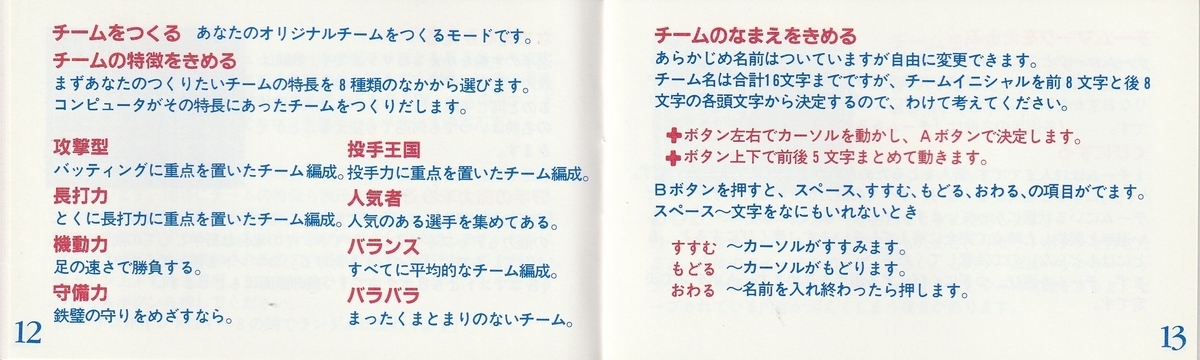 チームをつくる あなたのオリジナルチームをつくるモードです。
チームの特徴をきめる
まずあなたのつくりたいチームの特長を8種類のなかから選びます。
コンピュータがその特長にあったチームをつくりだします。
攻撃型
バッティングに重点を置いたチーム編成。
長打力
とくに長打力に重点を置いたチーム編成。
機動力
足の速さで勝負する。
守備力
鉄壁の守りをめざすなら。
投手王国
投手力に重点を置いたチーム編成。
人気者
人気のある選手を集めてある。
バランズ
すべてに平均的なチーム編成。
バラバラ
まったくまとまりのないチーム。
12
チームのなまえをきめる
あらかじめ名前はついていますが自由に変更できます。
チーム名は合計16文字までですが、チームイニシャルを前8文字と後8
文字の各頭文字から決定するので、わけて考えてください。
✚ボタン左右でカーソルを動かし、Aボタンで決定します。
✚ボタン上下で前後5文字まとめて動きます。
Bボタンを押すと、スペース、すすむ、もどる、おわる、の項目がでます。
スペース〜文字をなにもいれないとき
すすむ 〜カーソルがすすみます。
もどる 〜カーソルがもどります。
おわる 〜名前を入れ終わったら押します。
13